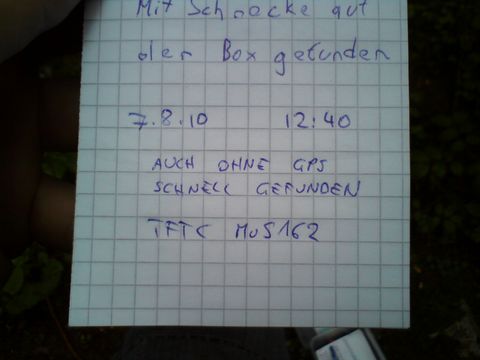 Mit Schnecke auf
der Box gefunden
7.8.10 12:40
AUCH OHNE GPS
SCHNELL GEFUNDEN
TFTC MuS162